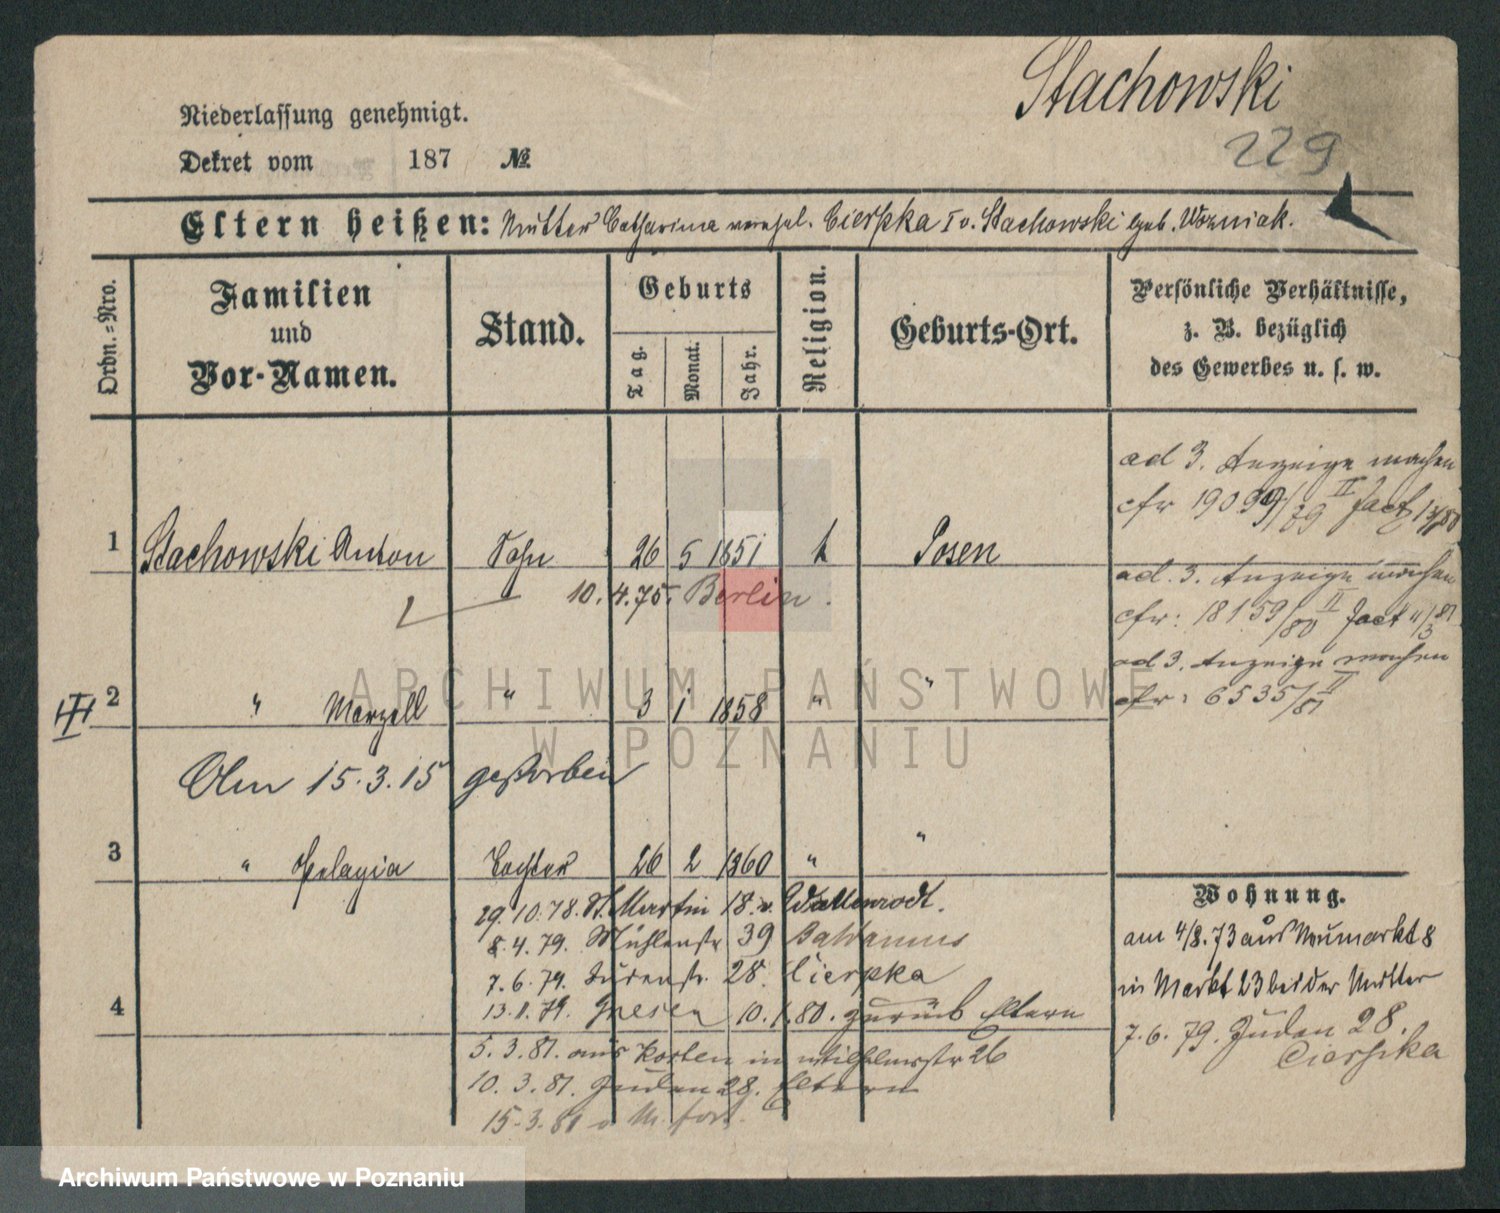 Stachowski
229
Niederlassung genehmigt.
Dekret vom 187 №
Eltern heißen: Mutter Catharina verehel. Cierpka I v. Stachowski geb. Wozniak.
Ordn.-Nro.
Familien und Vor-Namen.
Stand.
Geburts
Tag.
Monat.
Jahr.
Religion.
Geburts-Ort.
Persönliche Verhältnisse,
z. B. bezüglich
des Gewerbes u. s. w.
ad 3. Anzeige machen
cfr 19099/79 II
1 Stachowski Anton Sohn 26 5 1851 k Posen
10. 4. 75. Berlin.
ad. 3. Anzeige machen
cfr: 18159/80 II
ad 3. Anzeige machen
cfr: 6535/81 II
III 2 " Marzell " 3 1 1858 " "
Am 15.3.15 gestorben
3 " Pelagia Tochter 26 2 1860 " "
29.10.78. St. Martin 18. v. Wallenrodt.
8.4.79. Mühlenstr 39
7.6.79. Judenstr. 28. Cierpka
4 13.1.79. Gnesen 10.1.80. zurück Eltern
5.3.81. aus Kosten in Wilhelmstr 26
10.3.81. Juden 28. Eltern
15.3.81
Wohnung.
am 4/8.73 aus Neumarkt 8
in Markt 23 bei der Mutter
7.6.79. Juden 28.
Cierpka
ARCHIWUM PAŃSTWOWE
W POZNANIU
Archiwum Państwowe w Poznaniu